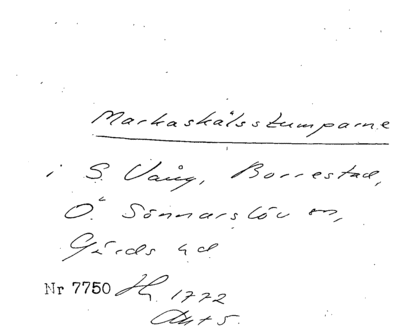 Markaskälsstumparne
i S. Vång, Borrestad,
Ö. Sönnarslöv sn,
Gärds hd
Nr 7750 Hy. 1772
Akt 5.